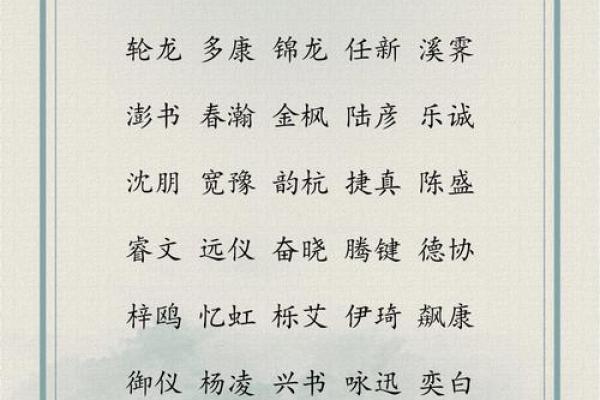 轮龙 多康 锦龙 任新 溪霁
澎书 春瀚 金枫 陆彦 乐诚
沈朋 宽豫 韵杭 捷真 陈盛
睿文 远仪 奋晓 腾键 德协
梓鸥 忆虹 栎艾 伊琦 飙康
御仪 杨凌 兴书 咏迅 奕白